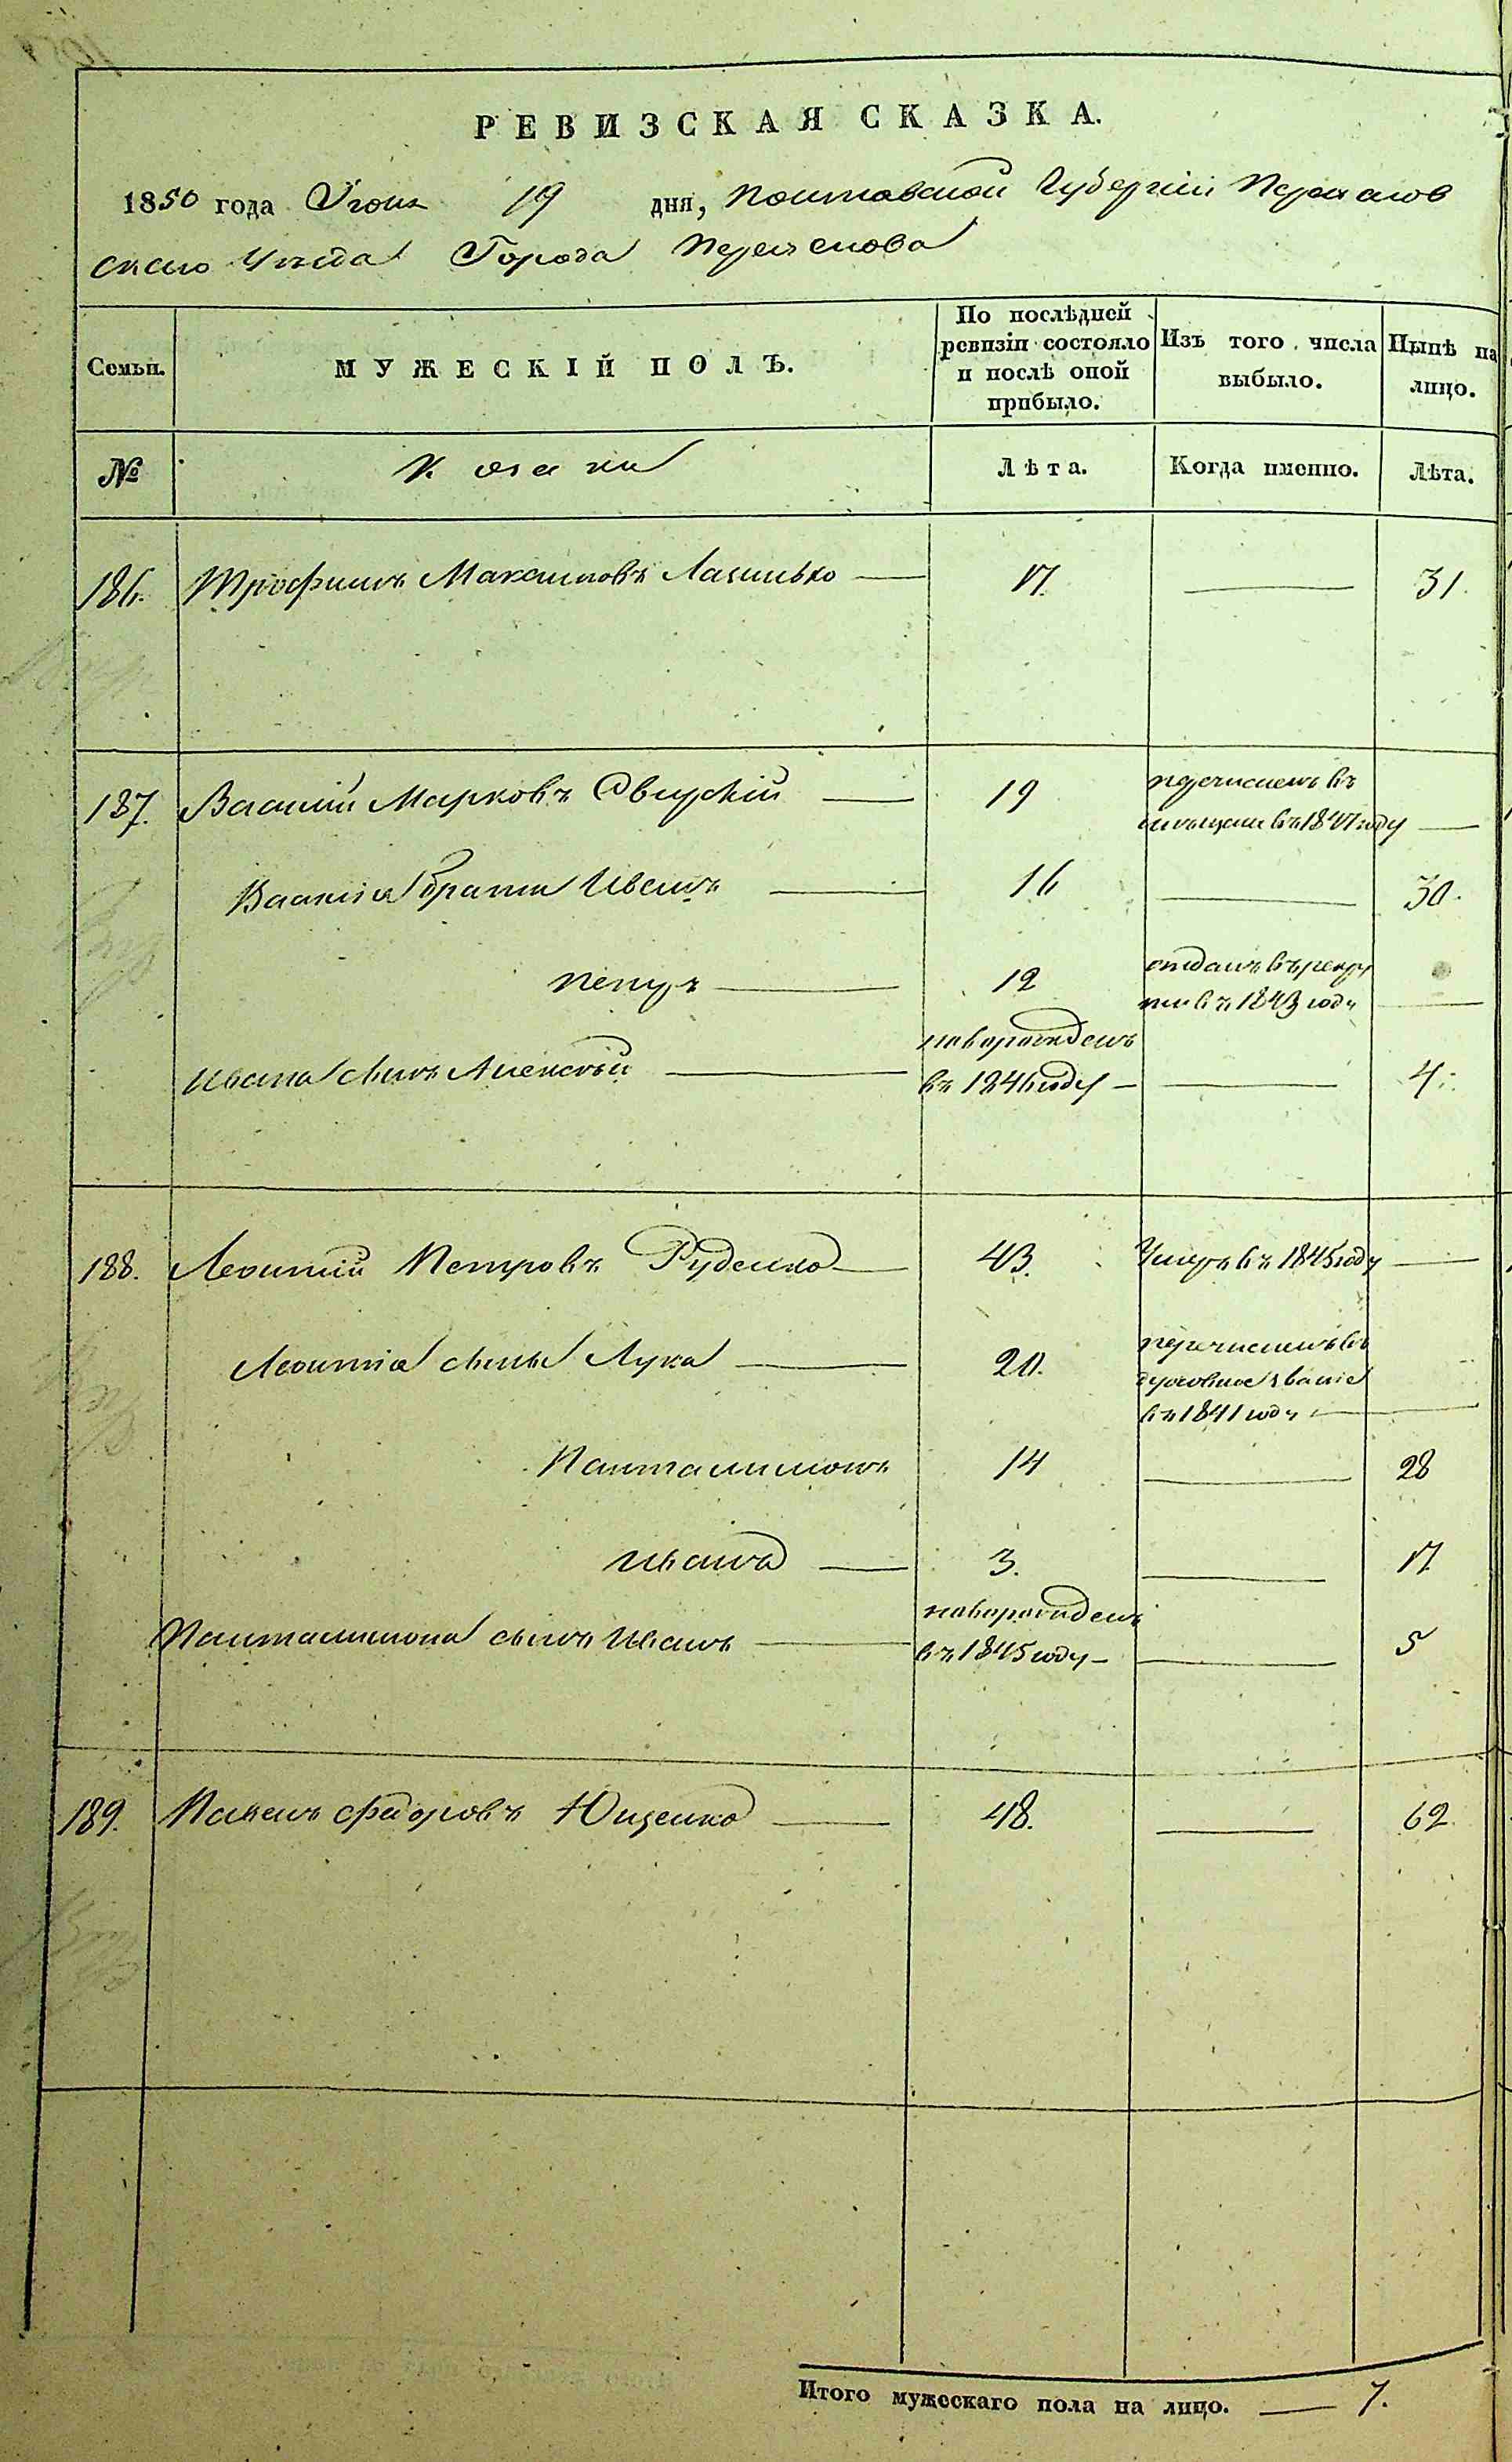 РЕВИЗСКАЯ СКАЗКА.
1850 года Июня 19 дня, Полтавской Губерніи Переяслов
скаго Уѣзда Города Переяслова
Семьи. МУЖЕСКІЙ ПОЛЪ. По послѣдней ревизіи состояло и послѣ оной прибыло. Изъ того числа выбыло. Нынѣ на лицо.
№ Козаки Лѣта. Когда именно. Лѣта.
186. Трофимъ Максимовъ 17. — 31.
187. Василій Марковъ 19 перечисленъ въ
мѣщане въ 1847 году —
Василія братья Иванъ — 16 — 30.
Петръ — 12 отданъ въ рекру
ты въ 1843 году —
Ивана сынъ Алексѣй — новорожденъ
въ 1846 году — — 4.
188. Леонтій Петровъ Руденко — 43. Умеръ въ 1845 году —
Леонтія сыны Лука — 20. перечисленъ въ
духовное званіе
въ 1841 году —
Панталимонъ 14 — 28
Иванъ — 3. — 17
Панталимона сынъ Иванъ — новорожденъ
въ 1845 году — — 5
189. Павелъ Федоровъ Ющенко — 48. — 62
Итого мужескаго пола на лицо. — 7.